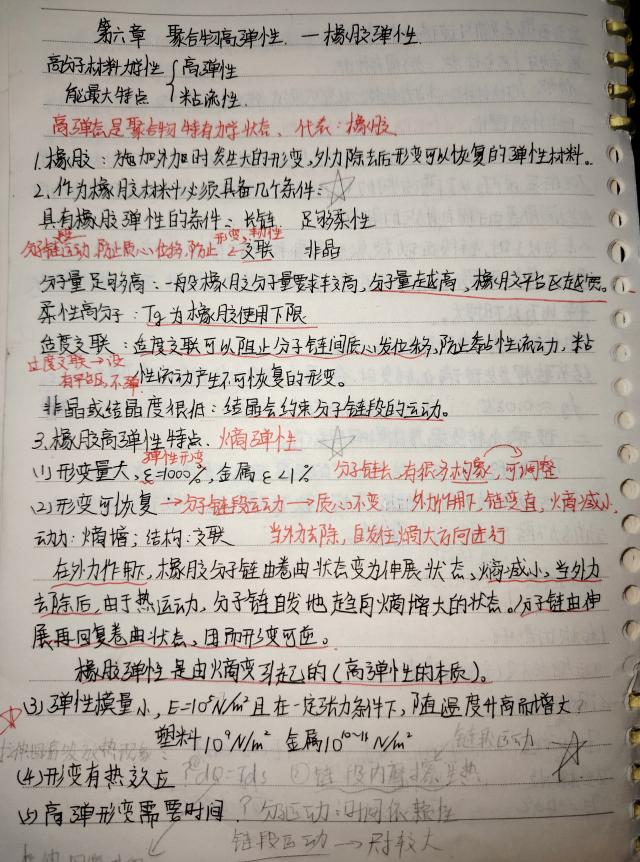 第六章 聚合物高弹性. —橡胶弹性.
高分子材料力学性 { 高弹性
能最大特点 粘流性.
高弹态是聚合物特有力学状态、代表:橡胶
1.橡胶:施加外力时发生大的形变,外力除去后形变可以恢复的弹性材料。
2.作为橡胶材料必须具备几个条件:☆
具有橡胶弹性的条件:长链. 足够柔性
分子链运动,防止质心位移,防止 形变, 韧性
交联 非晶
分子量足够高:一般橡胶分子量要求较高,分子量越高,橡胶平台区越宽。
柔性高分子:Tg为橡胶使用下限
适度交联:适度交联可以阻止分子链间质心发位移,防止黏性流动,粘
过度交联→没
有平台区,不弹
性流动产生不可恢复的形变。
非晶或结晶度很低:结晶会约束分子链段的运动。
3.橡胶高弹性特点. 熵弹性 ☆
弹性形变
(1)形变量大,ε=1000%,金属ε<1% 分子链长,有很多构象,可调整
(2)形变可恢复→分子链段运动→质心不变:外力作用下,链变直,火熵减小.
动力:熵增;结构:交联 当外力去除,自发往熵大方向进行
在外力作用下,橡胶分子链由卷曲状态变为伸展状态,熵减小,当外力
去除后,由于热运动,分子链自发地趋向熵增大的状态。分子链由伸
展再回复卷曲状态,因而形变可逆。
橡胶弹性是由熵变引起的(高弹性的本质)。
☆(3)弹性模量小,E=10⁵N/m²且在一定张力条件下,随温度升高而增大?
塑料10⁹N/m² 金属10¹⁰⁻¹¹N/m²
链段运动
(4)形变有热效应 dQ=Tds ②链段内摩擦生热
(5)高弹形变需要时间.? 分子运动:时间依赖性
链段运动→ 较大